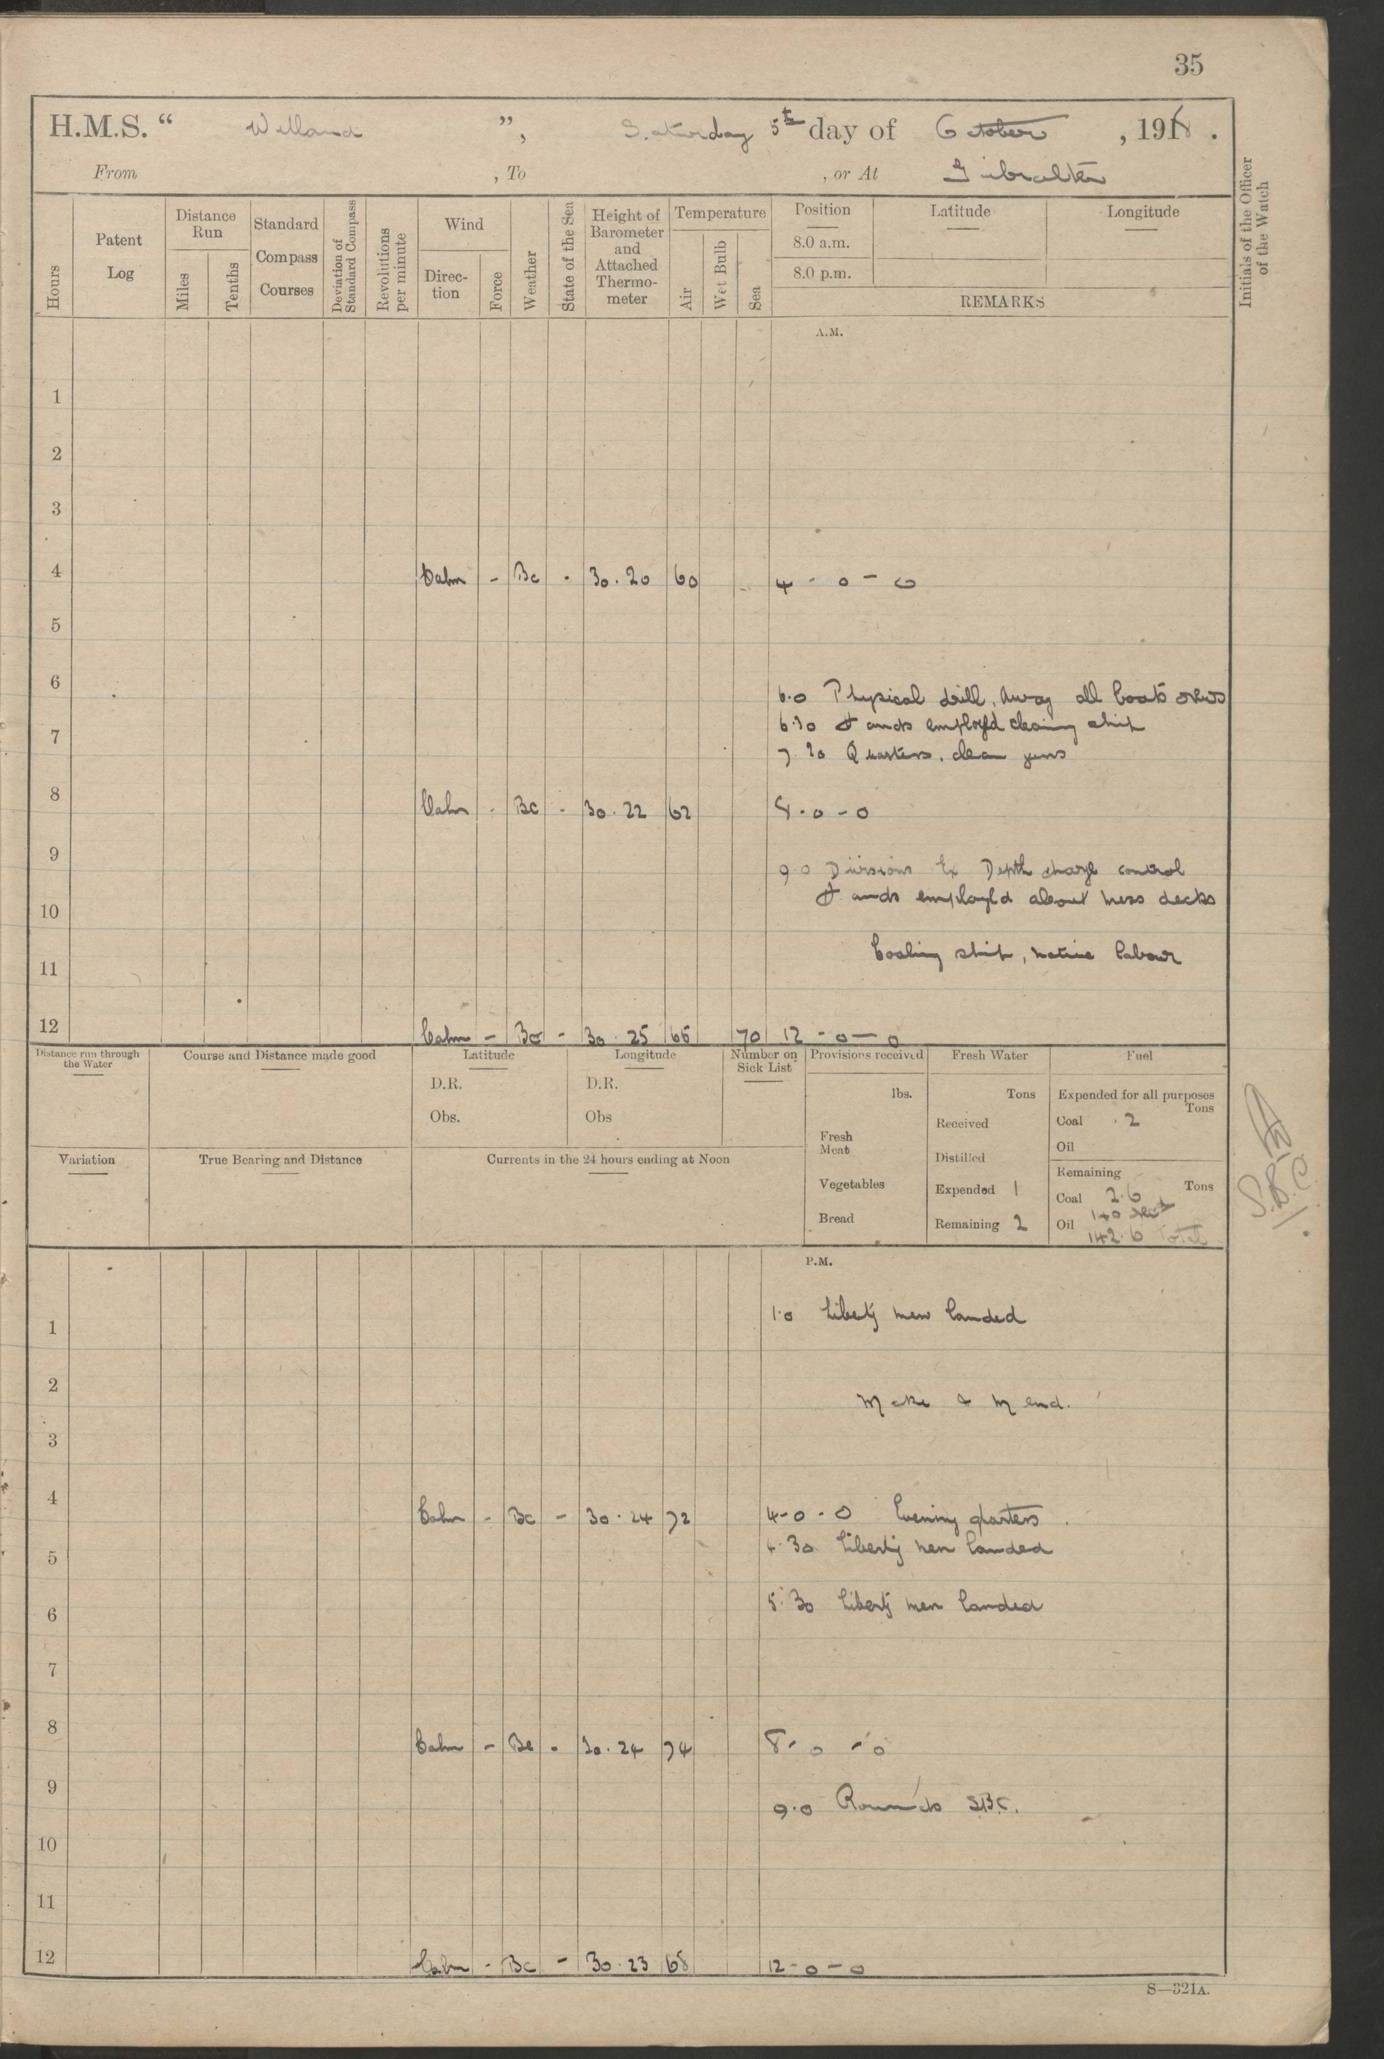 35
H.M.S. “ Welland ”, Saturday 5th day of October , 1918 .
From , To , or At Gibraltar
Hours
Patent Log
Distance Run
Miles
Tenths
Standard Compass Courses
Deviation of Standard Compass
Revolutions per minute
Wind
Direc-tion
Force
Weather
State of the Sea
Height of Barometer and Attached Thermo-meter
Temperature
Air
Wet Bulb
Sea
Position
8.0 a.m.
8.0 p.m.
Latitude
Longitude
REMARKS
Initials of the Officer of the Watch
A.M.
1
2
3
4 Calm - Bc - 30.20 60 4 - 0 - 0
5
6
6.0 Physical drill, Away all boats crews
6.30 Hands employed cleaning ship
7
7.20 Quarters, clean guns
8 Calm - Bc - 30.22 62 8.0-0
9
9 0 Divisions Ex Depth charge control
Hands employed about mess decks
10
Coaling ship, native labour
11
12 Calm - Bc - 30.25 66 70 12 - 0 - 0
Distance run through the Water
Course and Distance made good
Latitude
D.R.
Obs.
Longitude
D.R.
Obs
Number on Sick List
Provisions received
lbs.
Fresh Meat
Vegetables
Bread
Fresh Water
Tons
Received
Distilled
Expended 1
Remaining 2
Fuel
Expended for all purposes
Tons
Coal 2
Oil
Remaining
Tons
Coal 2.6
140
Oil
142.6 Total
Variation
True Bearing and Distance
Currents in the 24 hours ending at Noon
S.B.C.
P.M.
1.0 Liberty men landed
1
2
Make & Mend.
3
4 Calm - Bc - 30.24 72 4-0-0 Evening quarters
4.30 Liberty men landed
5
5.30 Liberty men landed
6
7
8 Calm - Bc - 30.24 74 8-0-0
9
9.0 Rounds SBC.
10
11
12 Calm - Bc - 30.23 68 12-0-0
S—321A.